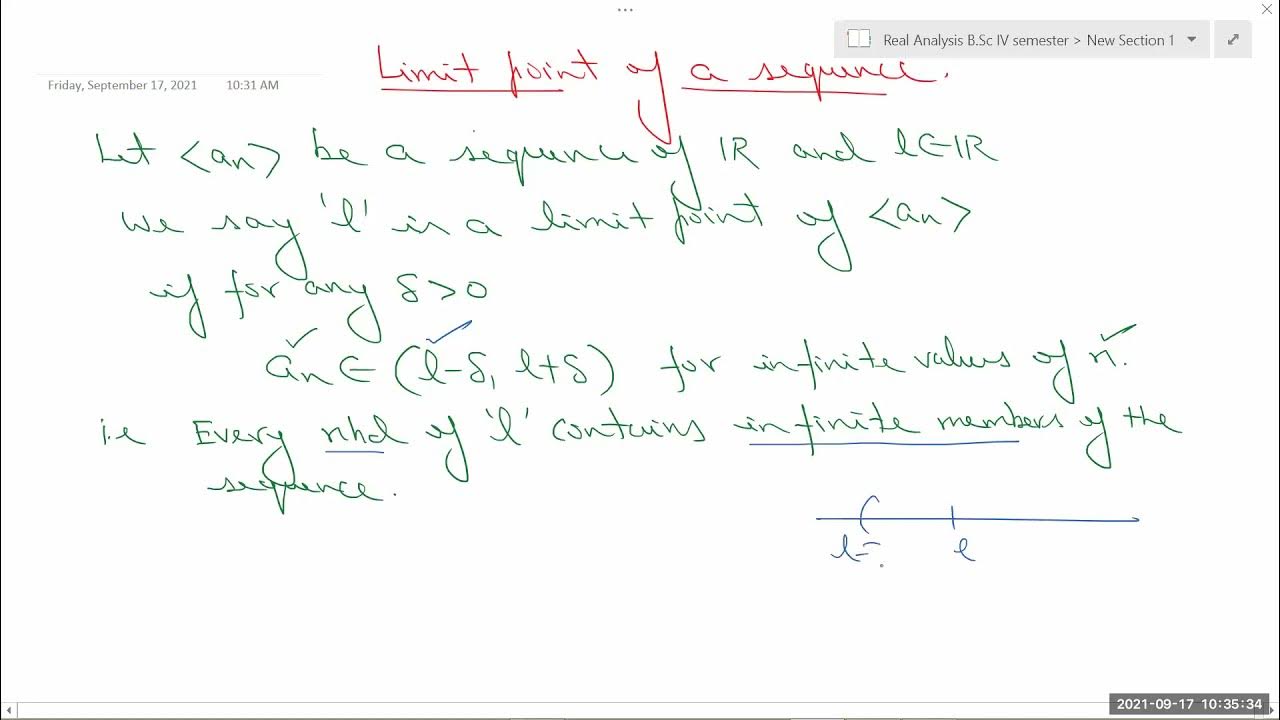 Real Analysis B.Sc IV semester > New Section 1
Limit point of a sequence.
Friday, September 17, 2021 10:31 AM
Let <an> be a sequence of IR and l∈IR
we say 'l' is a limit point of <an>
if for any δ>0
an ∈ (l-δ, l+δ) for infinite values of n.
i.e Every nhd of 'l' contains infinite members of the
sequence.
l- l
2021-09-17 10:35:34